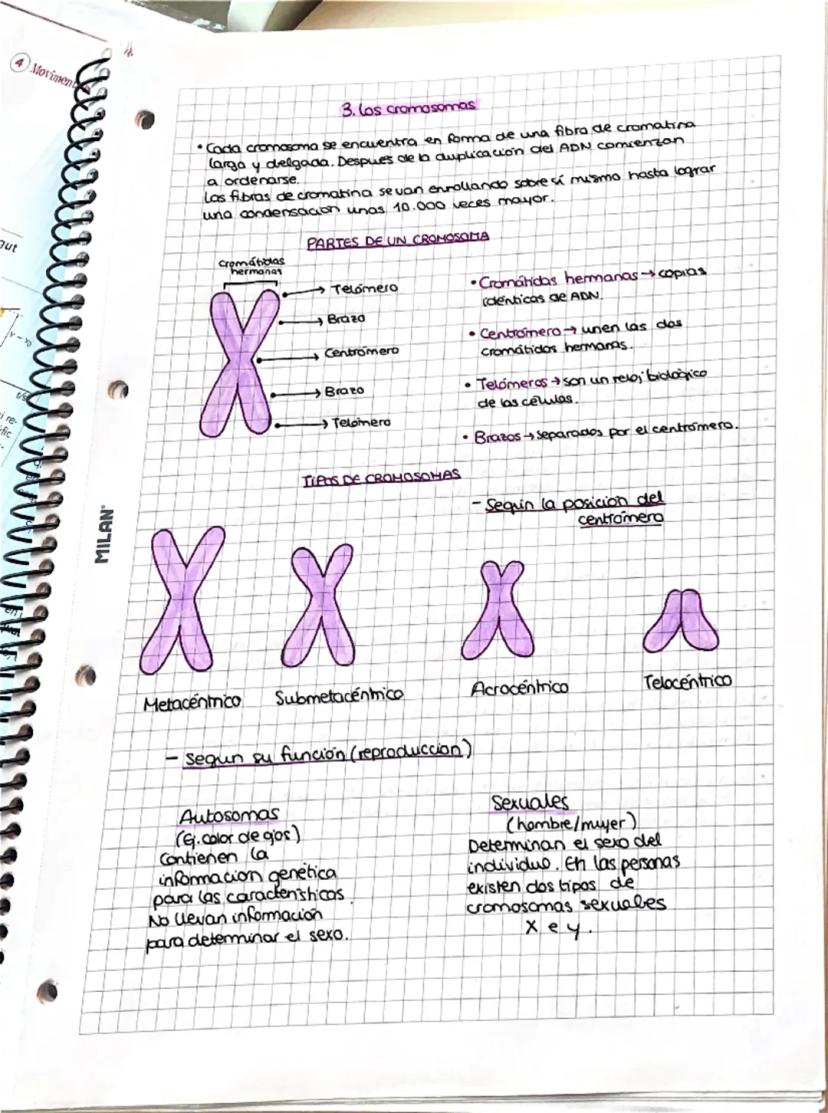 4 Movimen
3. Los cromosomas
• Cada cromosoma se encuentra en forma de una fibra de cromatina
larga y delgada. Despues de la duplicación del ADN comienzan
a ordenarse.
Las fibras de cromatina se van enrollando sobre sí mismo hasta lograr
una condensación unas 10.000 veces mayor.
PARTES DE UN CROMOSOMA
Cromátidas
hermanas
→ Telómero
→ Brazo
→ Centrómero
→ Brazo
→ Telómero
• Cromátidas hermanas → copias
idénticas de ADN.
• Centrómero → unen las dos
cromátidos hermanas.
• Telómeros → son un reloj biológico
de las células.
• Brazos → separados por el centrómero.
TIPOS DE CROMOSOMAS
- Según la posición del
centrómero
MILAN
Metacéntrico Submetacéntrico Acrocéntrico Telocéntrico
- Segun su función (reproduccion)
Autosomas
(Ej. color de ojos)
Contienen la
información genética
para las características.
No llevan información
para determinar el sexo.
Sexuales
(hombre/mujer)
Determinan el sexo del
individuo. En las personas
existen dos tipos de
cromosomas sexuales
X e y.